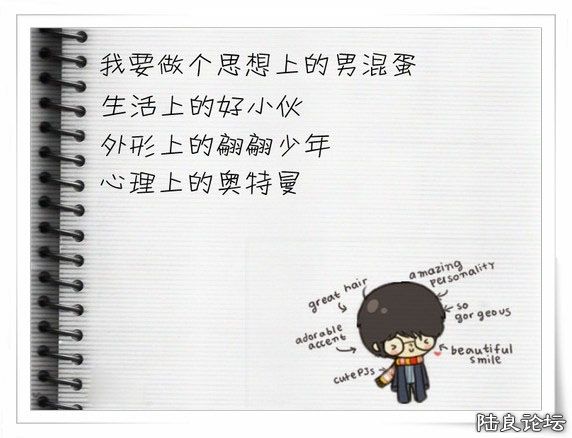 我要做个思想上的男混蛋
生活上的好小伙
外形上的翩翩少年
心理上的奥特曼
great hair
amazing
personality
so
gorgeous
adorable
accent
beautiful
smile
cute PJs
陆良论坛